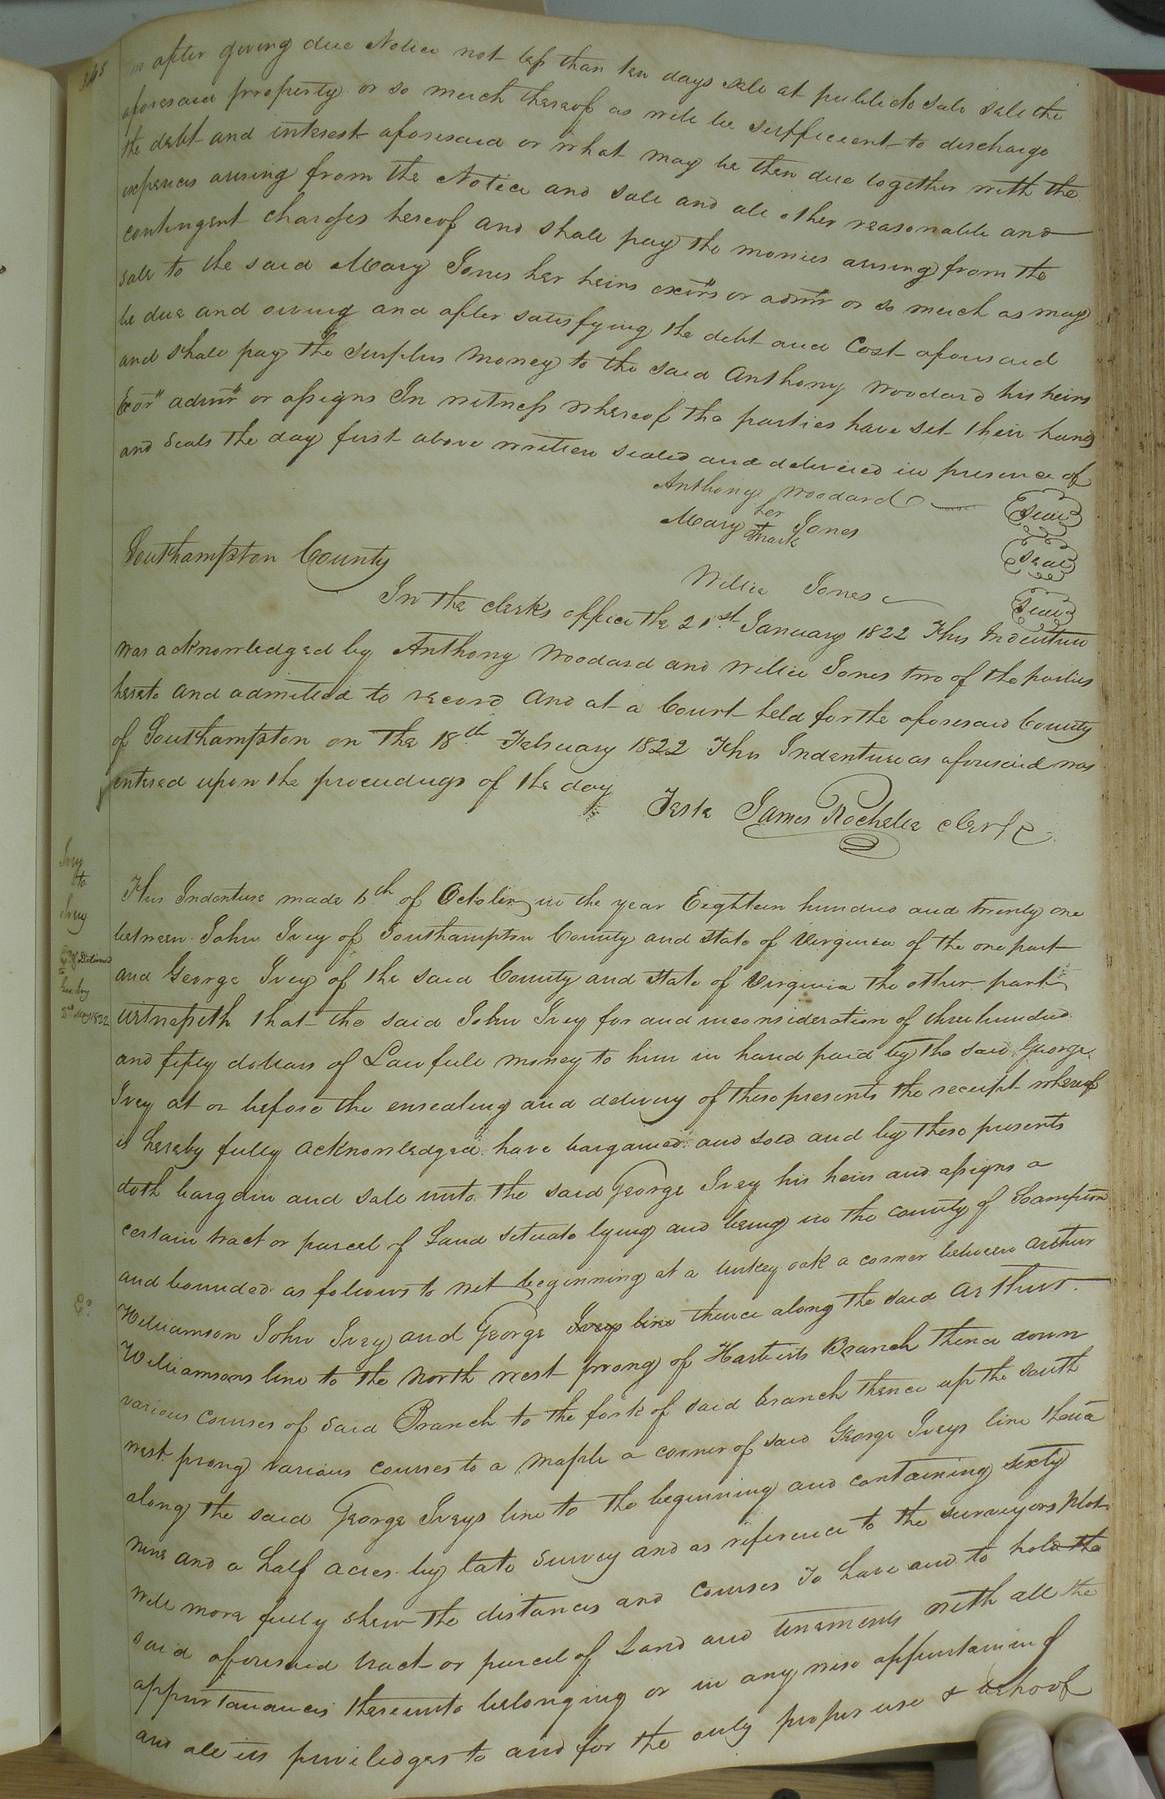 after giving due Notice not less than ten days sale at publick sale sell the
aforesaid property or so much thereof as will be sufficient to discharge
the debt and interest aforesaid or what may be then due together with the
expences arising from the Notice and sale and all other reasonable and
contingent charges hereof and shall pay the monies arising from the
sale to the said Mary Jones her heirs exors or admrs or so much as may
be due and owing and after satisfying the debt and Cost aforesaid
and shall pay the surplus money to the said Anthony Woodard his heirs
Exors admrs or assigns In witness whereof the parties have set their hands
and Seals the day first above written sealed and delivered in presence of
Anthony Woodard Seal
her
Mary + Jones Seal
mark
Willie Jones Seal
Southampton County
In the clerks office the 21st January 1822 This Indenture
was acknowledged by Anthony Woodard and Willie Jones two of the parties
hereto and admitted to record And at a Court held for the aforesaid County
of Southampton on the 18th February 1822 This Indenture as aforesaid was
entered upon the proceedings of the day
Teste James Rochelle clerk
Ivey
to
Ivey
This Indenture made 6th of October in the year Eighteen hundred and twenty one
between John Ivey of Southampton County and State of Virginia of the one part
and George Ivey of the said County and State of Virginia the other part
witnesseth that the said John Ivey for and inconsideration of three hundred
and fifty dollars of Lawfull money to him in hand paid by the said George
Ivey at or before the ensealing and delivery of these presents the receipt whereof
is hereby fully acknowledged have bargained and sold and by these presents
doth bargain and sale unto the said George Ivey his heirs and assigns a
certain tract or parcel of Land situate lying and being in the county of Hampton
and bounded as follows to wit beginning at a turkey oak a corner between Arthur
Williamson John Ivey and George Iveys line thence along the said Arthur
Williamsons line to the North west prong of Branch thence down
various courses of said Branch to the fork of said branch thence up the south
west prong various courses to a maple a corner of said George Iveys line thence
along the said George Iveys line to the beginning and containing sixty
nine and a half acres by late Survey and as reference to the surveyors plot
will more fully shew the distances and courses To have and to hold the
said aforesaid tract or parcel of Land and tenements with all the
appurtanances thereunto belonging or in any wise appurtaining
and all its priviledges to and for the only proper use & behoof